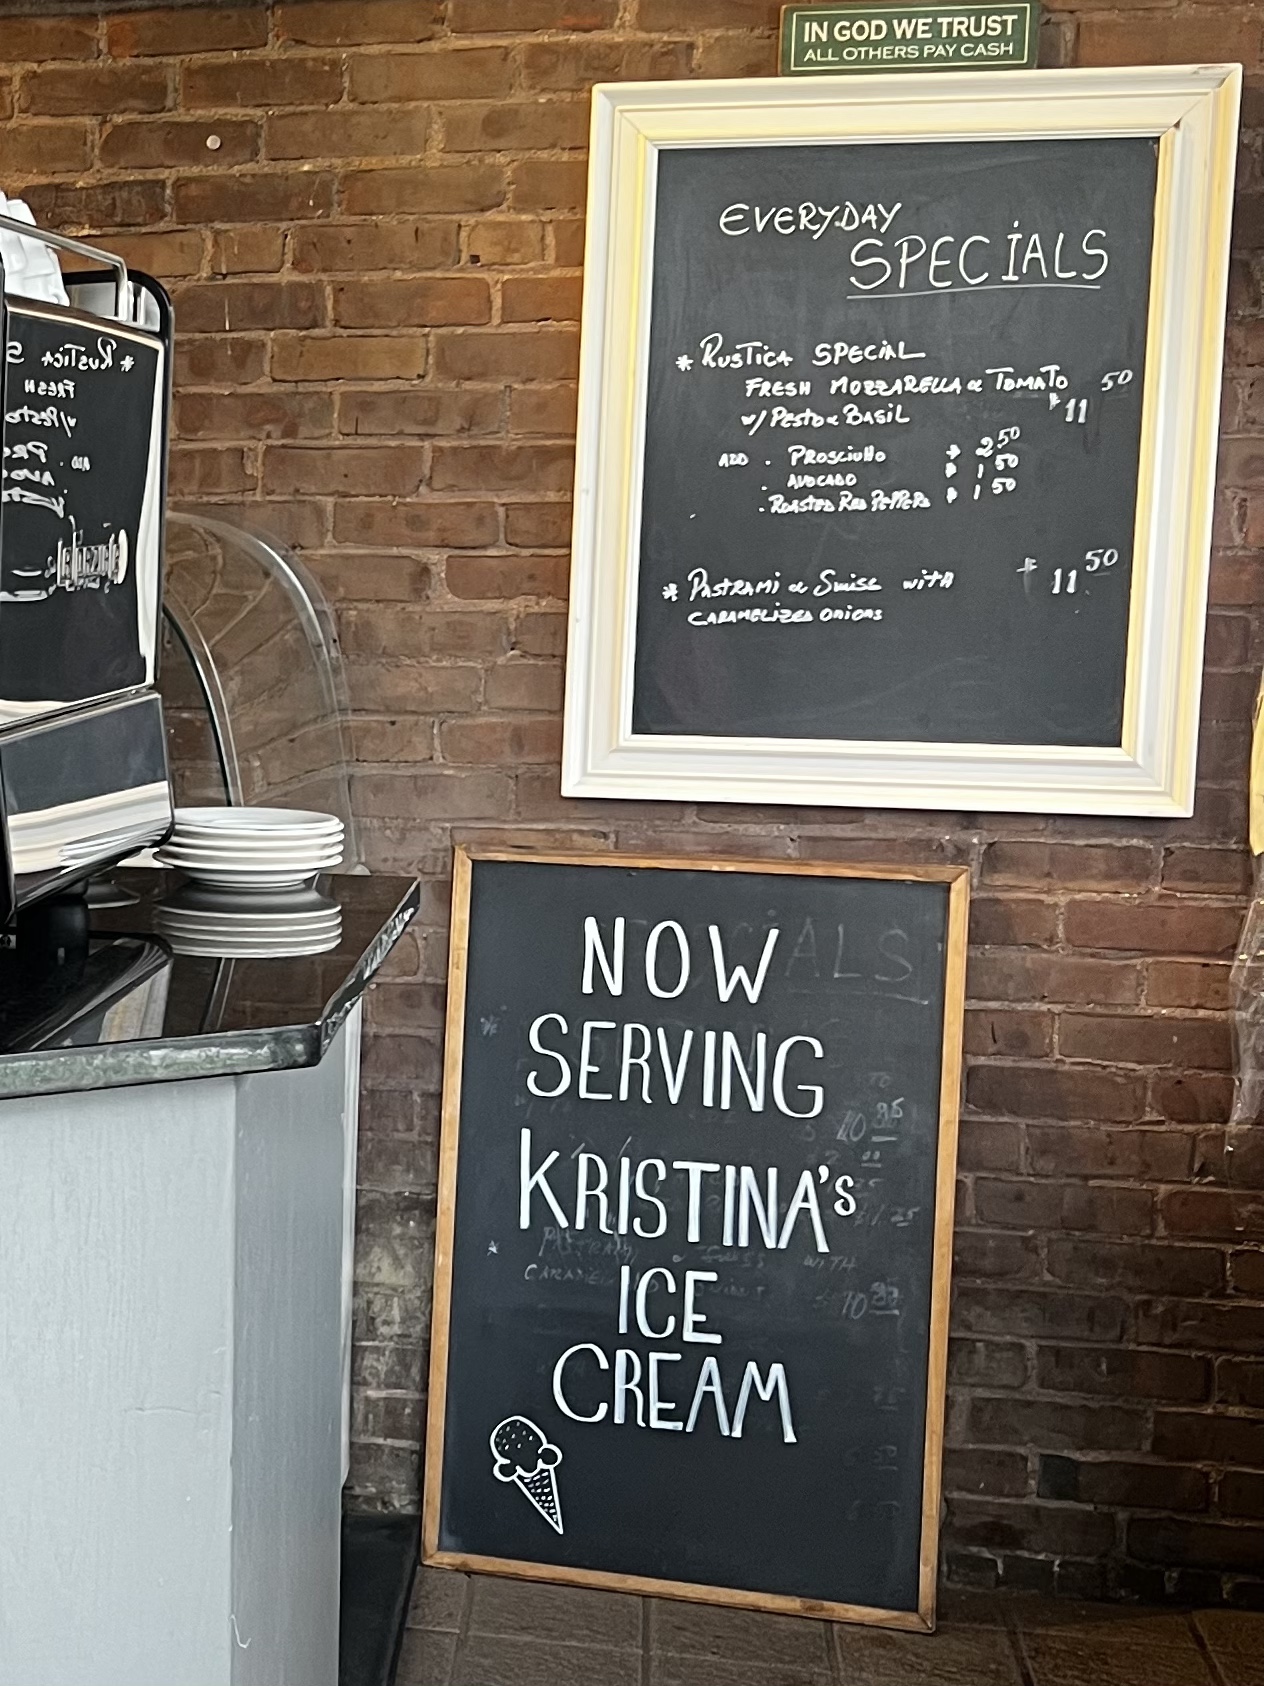 IN GOD WE TRUST
ALL OTHERS PAY CASH
EVERYDAY
SPECiALS
* RUSTiCA SPECiAL
FRESH MOZZARELLA & TOMATO
w/ Pesto & BASiL $11 50
ADD . PROSCiUttO $ 2 50
. AVOCADO $ 1 50
. ROASTED RED PEPPERS $ 1 50
* PASTRAMi & Swiss witH $ 11 50
CARAMELiZED OniOnS
NOW
SERVING
KRISTINA's
ICE
CREAM